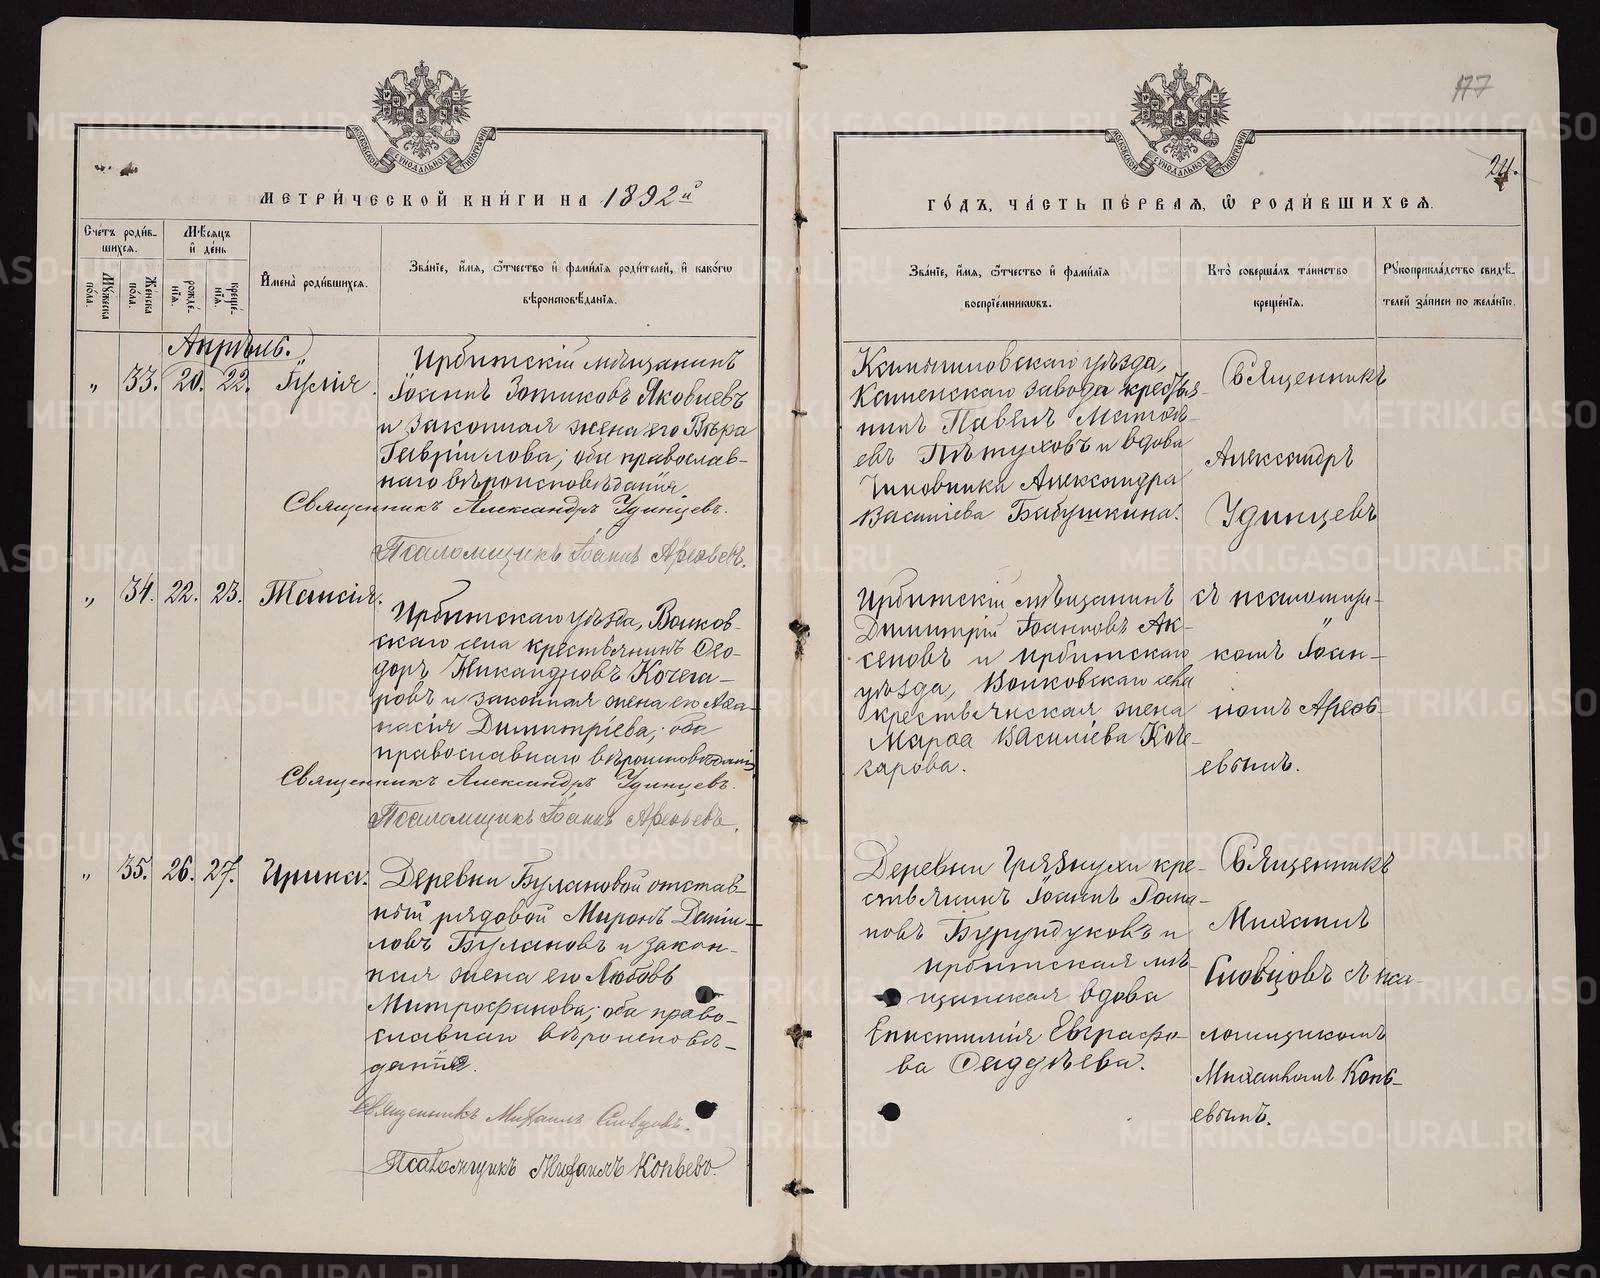 177
24.
МОСКОВСКОЙ СУНОДАЛЬНОЙ ТИПОГРАФИИ
МОСКОВСКОЙ СУНОДАЛЬНОЙ ТИПОГРАФИИ
МЕТРИ́ЧЕСКОЙ КНИ́ГИ НА 1892й
Сче́тъ роди́в-
шихся.
Мꙋ́жеска
по́ла.
Же́нска
по́ла.
Мѣ́сяцъ
и҆ де́нь
рожде́-
нїя.
креще́-
нїя.
И҆мена̀ роди́вшихся.
Зва́нїе, и҆́мя, ѻ҆́тчество и҆ фами́лїя роди́телей, и҆ како́гѡ
вѣроисповѣ́данїя.
Апрѣль.
„ 33. 20. 22. Іулія.
Ирбитскій мѣщанинъ
Іоаннъ Зотиковъ Яковлевъ
и законная жена его Вѣра
Гавріилова; оба православ-
наго вѣроисповѣданія.
Священникъ Александръ Удинцевъ.
Псаломщикъ Іоаннъ Арефьевъ.
„ 34. 22. 23. Таисія.
Ирбитскаго уѣзда, Волков-
скаго села крестьянинъ Ѳео-
доръ Никандровъ Кочега-
ровъ и законная жена его Аѳа-
насія Димитріева; оба
православнаго вѣроисповѣданія
Священникъ Александръ Удинцевъ.
Псаломщикъ Іоаннъ Арефьевъ.
„ 35. 26. 27. Ирина.
Деревни Булановой отстав-
ный рядовой Миронъ Дани-
ловъ Булановъ и закон-
ная жена его Любовь
Митрофанова; оба право-
славнаго вѣроисповѣ-
данія.
Священникъ Михаилъ Словцовъ.
Псаломщикъ Михаилъ Копьевъ.
ГО́ДЪ, ЧА́СТЬ ПЕ́РВАЯ, Ѡ҆ РОДИ́ВШИХСЯ.
Зва́нїе, и҆́мя, ѻ҆́тчество и҆ фами́лїя
воспрїе́мникѡвъ.
Кто̀ соверша́лъ та́инство
креще́нїя.
Рꙋкоприкла́дство свидѣ́-
телей за́писи по жела́нїю.
Камышловскаго уѣзда,
Каменскаго завода крестья-
нинъ Павелъ Матѳѣ-
евъ Пѣтуховъ и вдова
чиновника Александра
Васильева Бабушкина.
Священникъ
Александръ
Удинцевъ
Ирбитскій мѣщанинъ
Димитрій Іоанновъ Ак-
сеновъ и Ирбитскаго
уѣзда, Волковскаго села
крестьянская жена
Марѳа Васильева Коче-
гарова.
съ псаломщи-
комъ Іоан-
номъ Арефь-
евымъ.
Деревни Грязнухи кре-
стьянинъ Іоаннъ Рома-
новъ Бурундуковъ и
ирбитская мѣ-
щанская вдова
Епистимія Евграфо-
ва Фаддѣева.
Священникъ
Михаилъ
Словцовъ съ пса-
ломщикомъ
Михаиломъ Копь-
евымъ.
METRIKI.GASO-URAL.RU